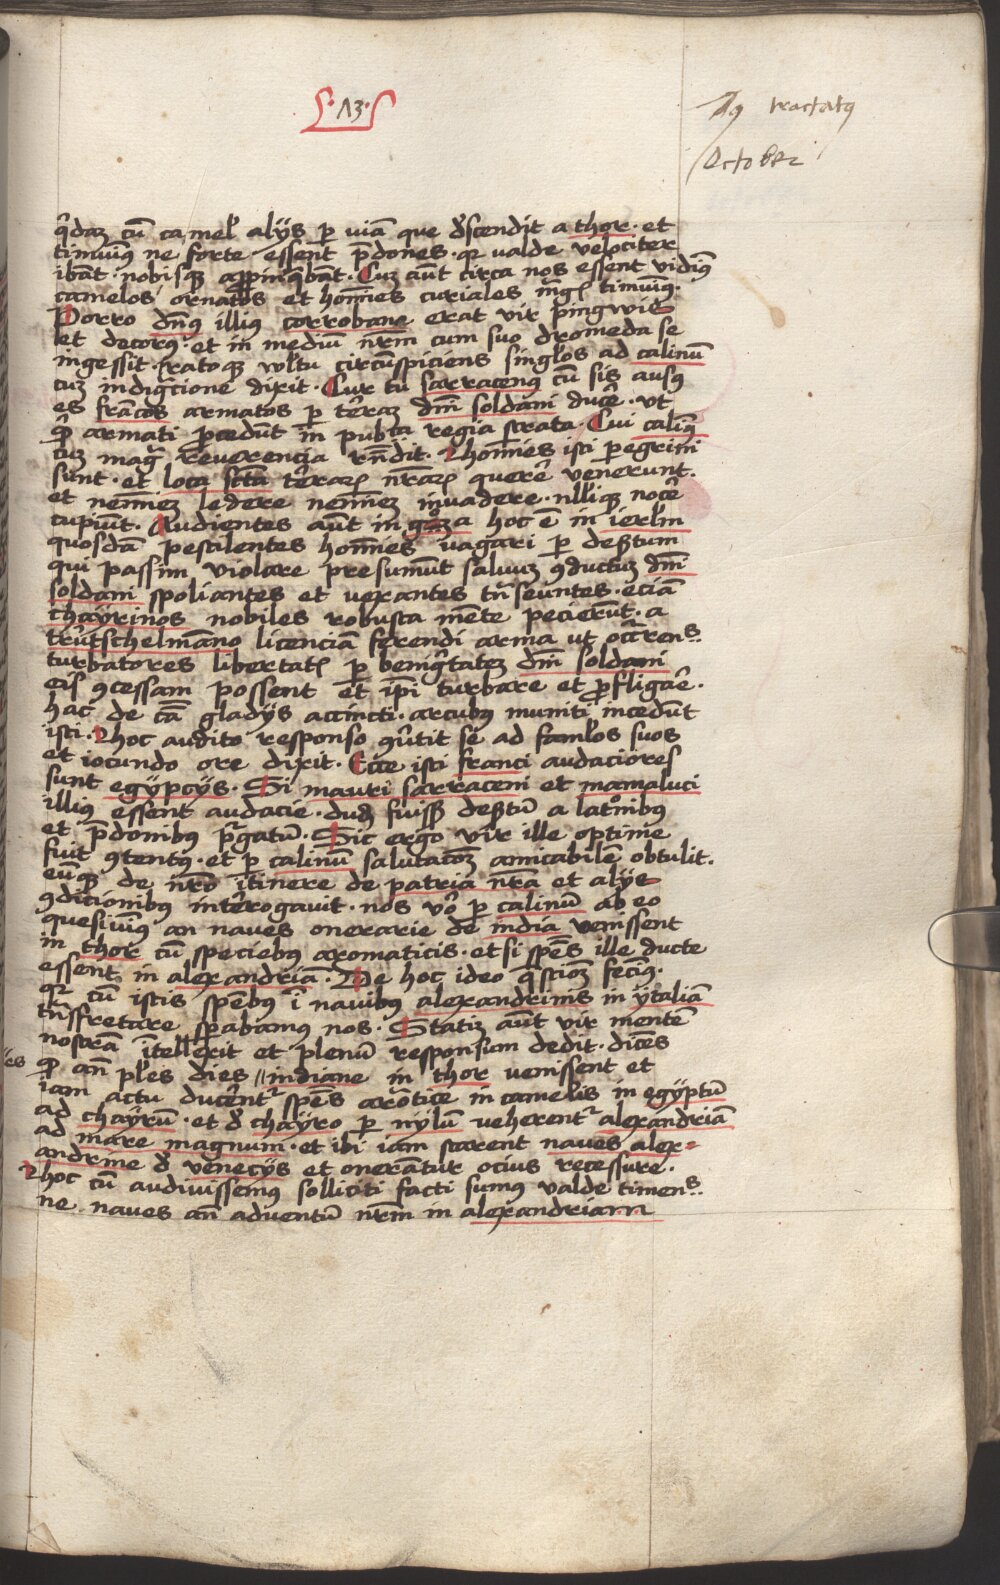 ·13·
7us tractatus
October
q̄dam cū camel' alijs p̱ uiā que descendit a thor · et
timuim9 ne forte essent p̄dones · q2 valde velociter
ibāt · nobisq3 app̱inq̄bāt · Cuz aūt circa nos essent vidim9
camelos ornatos et hom̄ies curiales mḡ timuim9 ·
Porro dn̄9 illi9 corrobane erat vir pingwis
et decor9 · et in mediū nr̄m cum suo dromeda se
ingessit · ratoq3 vultu circūspiciens singlos ad calinū
cum indigcione dixit · Cur tu sarracen9 cū sis aus9
es francos armatos p̱ t'ras dn̄i soldani duce' · ut
armati p̱cedūt in publica regia strata · Cui calin9
cum magͣ reverencia rn̄dit · Hom̄ies isti peregrini
sunt · et loca scta t'rarꝝ nr̄arꝝ quere' venerunt ·
et nem̄iem ledere nem̄iem invadere · nlliq3 noce'
cupiūt · Audientes aūt in gazza hoc ē in ierl'm
quosdā pestilentes hom̄ies vagari p̱ des'tum
qui passim violare presumūt salvum 9ductum dn̄i
soldani spoliantes et vexantes tn̄seuntes · eciā
chayrinos nobiles robusta mēte pecierūt · a
trutschelmāno licenciā ferendi arma ut occ'rens
turbatores libertatꝭ p̱ benig'tatem dn̄i soldani
eis 9cessam possent et ip̄i turbare et p̱fligare ·
hac de cā gladijs accincti · arcub9 muniti incedūt
isti · Hoc audito responso 9u'tit se ad fam'los suos
et iocundo ore dixit · Ecce isti franci audaciores
sunt egÿpcÿs · Si mauri sarraceni et mamaluci
illi9 essent audacie · dud fuiss3 des'tū a latronibus
et p̄donibus p̱gatū · Sic ergo vir ille optime
fuit 9tent9 · et p̱ calinū salutacōem amicabilē obtulit ·
eūq3 de nr̄o itinere de patria nr̄a et alijs
9dicionibus int'rogavit · nos vo p̱ calinū ab eo
quesiuim9 an naves onerarie de india venissent
in thor cū speciebus aromaticis · et si sp̄es ille ducte
essent in alexandriā · De hoc ideo q̄stiōem fecim9 ·
q2 cū istis sp̄ebus ī navibus alexandrinis in ÿtaliā
tn̄sfretare sp̱abamus nos · Statim aūt vir mentē
nostrā ītellexit et plenū responsum dedit · dicēs
q̱ an̄ pl'es dies indiane in thor venissent et
iam actu ducēnt2 sp̄es arōtice in camelis in egÿptū
ad chaÿrū · et de chaÿro p̱ nÿlū veherent2 alexandriā
ad mare magnum · et ibi iam starent naves alex=
andrine de venecÿs et onerātur ocius recessure ·
Hoc cū audivissem9 solliciti facti sum9 valde timens
ne naves an̄ adventū nr̄m in alexandriam